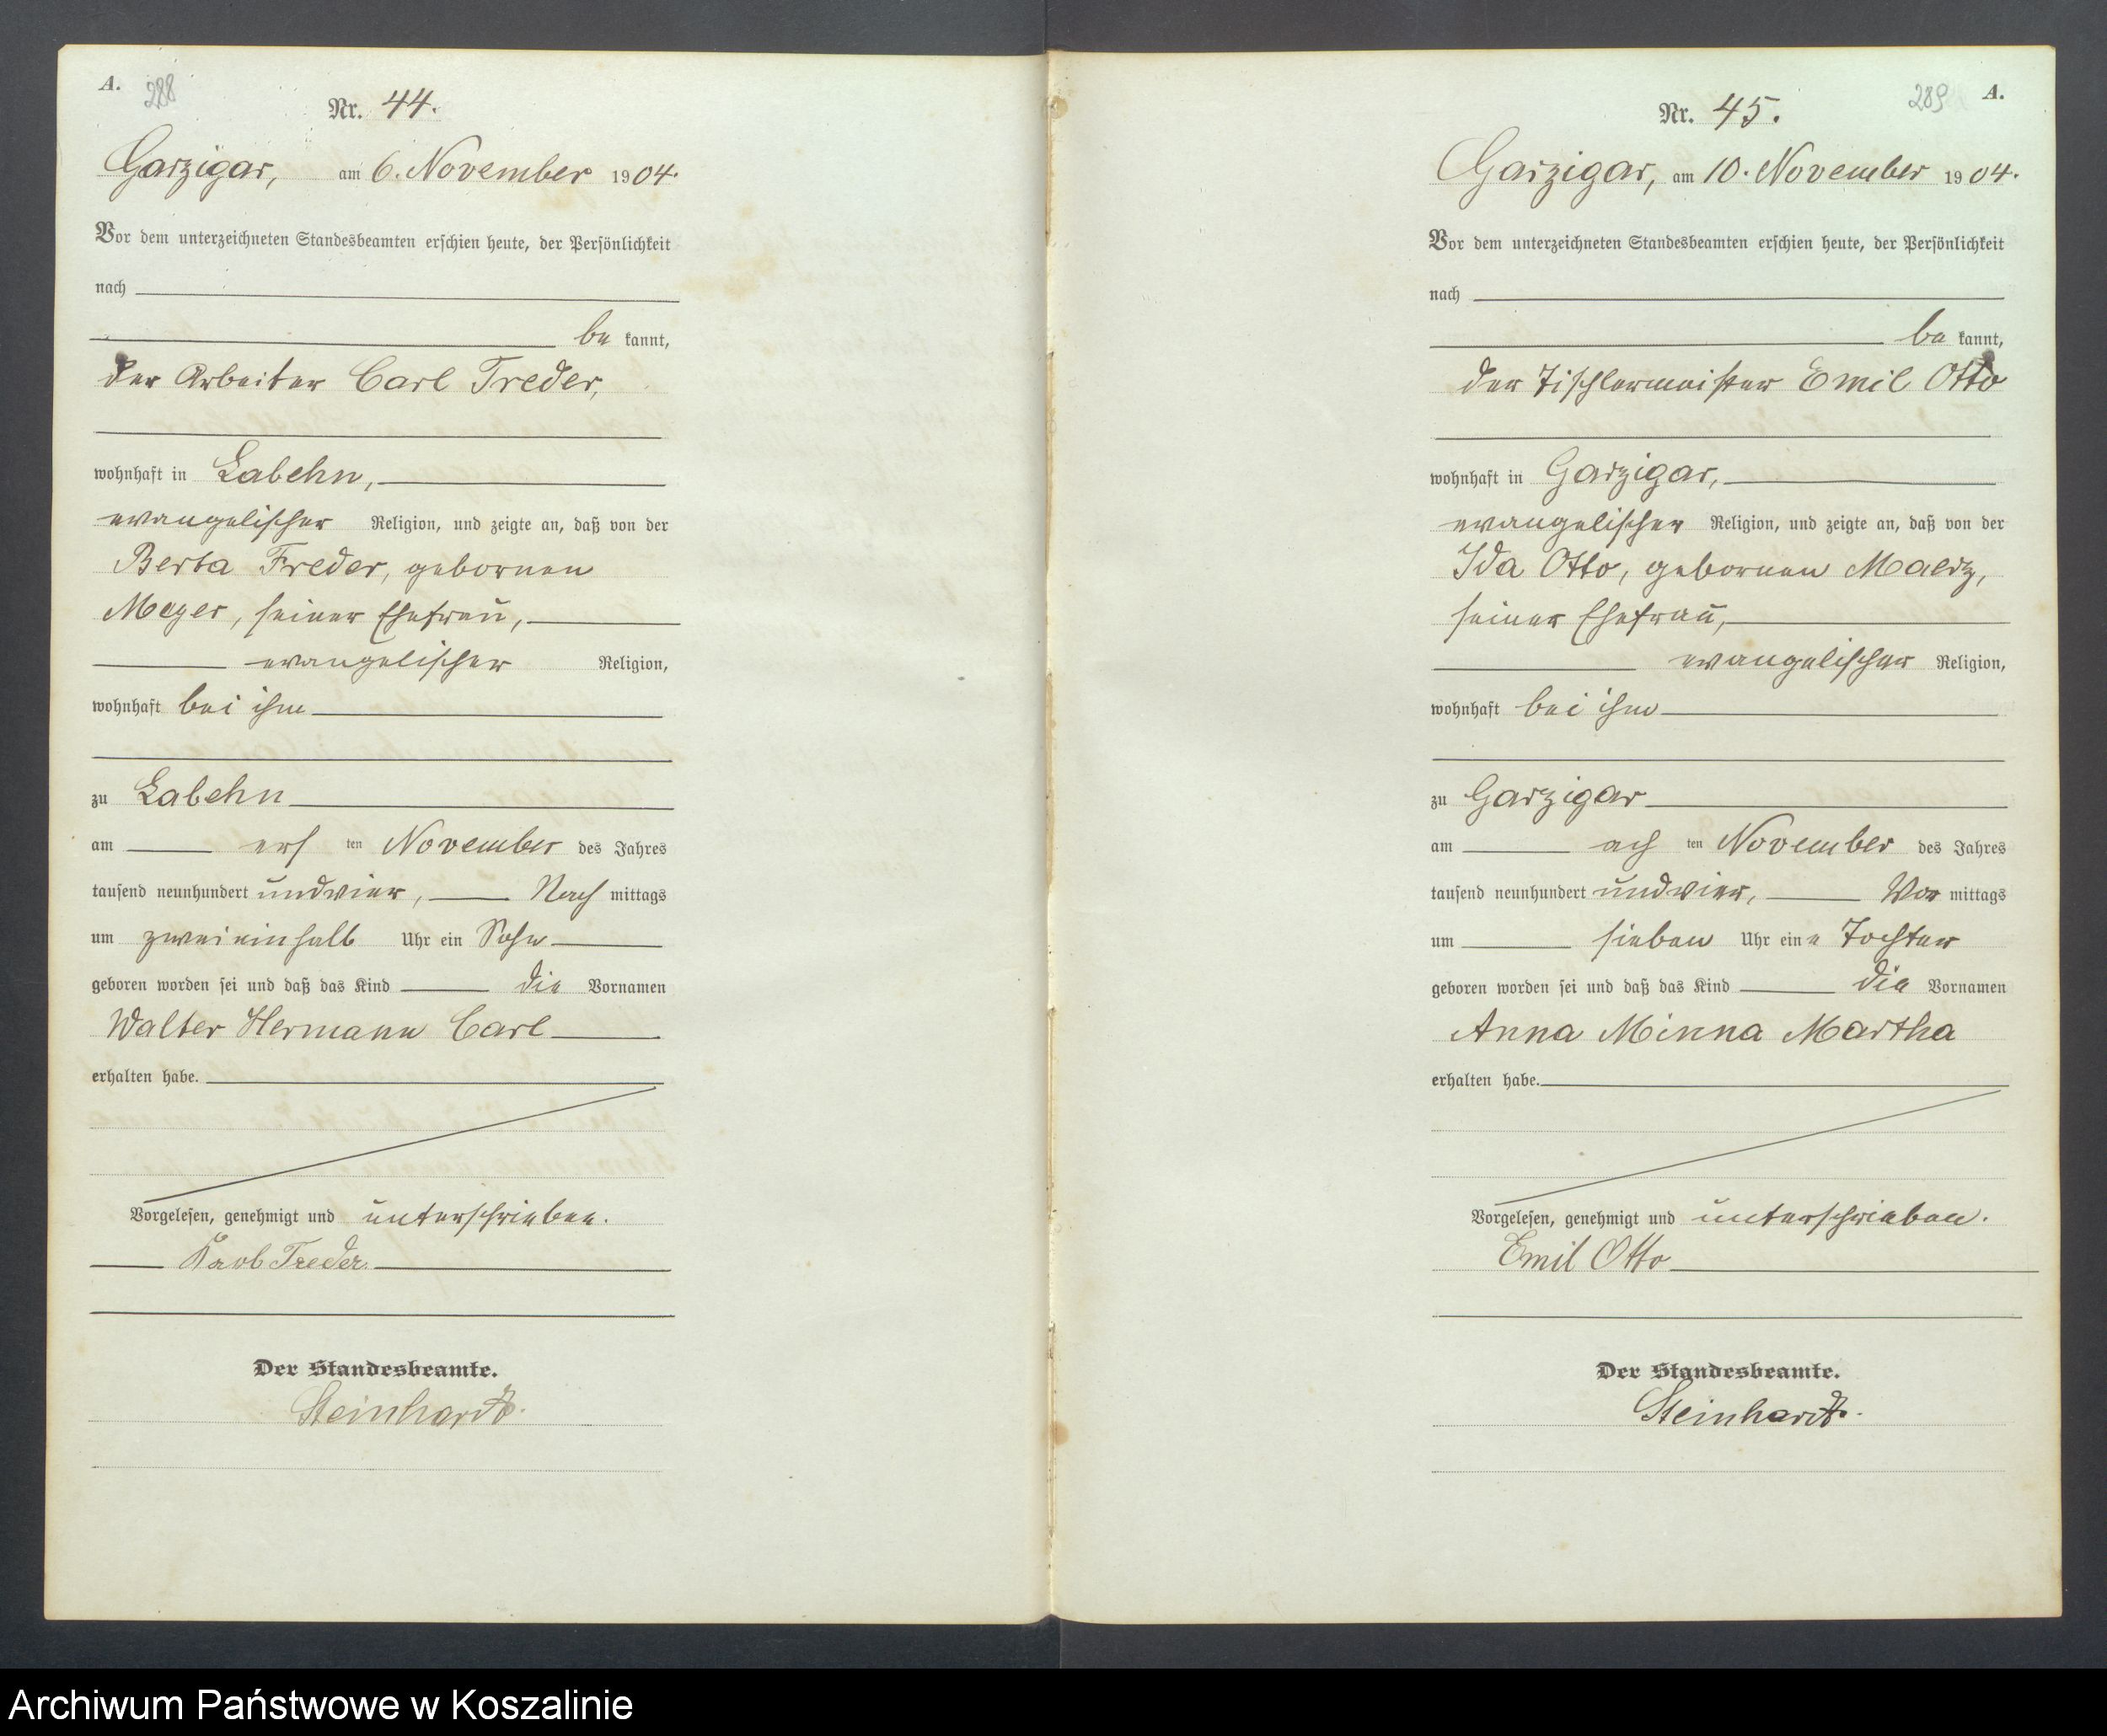 A. 288
Nr. 44.
Garzigar, am 6. November 1904.
Vor dem unterzeichneten Standesbeamten erschien heute, der Persönlichkeit
nach
be kannt,
der Arbeiter Carl Treder,
wohnhaft in Labehn,
evangelischer Religion, und zeigte an, daß von der
Berta Treder, gebornen
Meyer, seiner Ehefrau,
evangelischer Religion,
wohnhaft bei ihm
zu Labehn
am ers ten November des Jahres
tausend neunhundert undvier, Nach mittags
um zweieinhalb Uhr ein Sohn
geboren worden sei und daß das Kind die Vornamen
Walter Hermann Carl
erhalten habe.
Vorgelesen, genehmigt und unterschrieben.
Karl Treder
Der Standesbeamte.
Steinhardt.
289 A.
Nr. 45.
Garzigar, am 10. November 1904.
Vor dem unterzeichneten Standesbeamten erschien heute, der Persönlichkeit
nach
be kannt,
der Tischlermeister Emil Otto
wohnhaft in Garzigar,
evangelischer Religion, und zeigte an, daß von der
Ida Otto, gebornen Maerz,
seiner Ehefrau,
evangelischer Religion,
wohnhaft bei ihm
zu Garzigar
am ach ten November des Jahres
tausend neunhundert undvier, Vor mittags
um sieben Uhr eine Tochter
geboren worden sei und daß das Kind die Vornamen
Anna Minna Martha
erhalten habe.
Vorgelesen, genehmigt und unterschrieben.
Emil Otto
Der Standesbeamte.
Steinhardt.
Archiwum Państwowe w Koszalinie